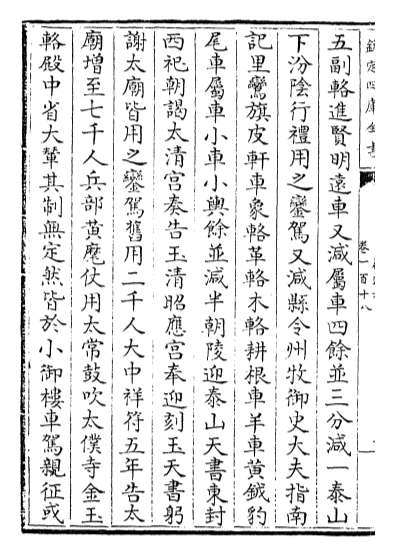 五副輅進賢明遠車又減屬車四餘並三分減一泰山
下汾陰行禮用之鑾駕又減縣令州牧御史大夫指南
記里鸞旗皮軒車象輅革輅木輅耕根車羊車黃鉞豹
尾車屬車小車小輿餘並減半朝陵迎泰山天書東封
西祀朝謁太清宫奏告玉清昭應宫奉迎刻玉天書躬
謝太廟皆用之鑾駕舊用二千人大中祥符五年告太
廟增至七千人兵部黃麾仗用太常鼓吹太僕寺金玉
輅殿中省大輦其制無定然皆於小御樓車駕親征或